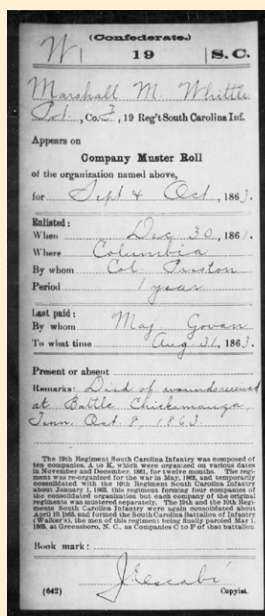 (Confederate.)
W | 19 | S. C.
Marshall M. Whittle
Pvt, Co. , 19 Reg't South Carolina Inf.
Appears on
Company Muster Roll
of the organization named above,
for Sept & Oct, 1863.
Enlisted:
When Dec 30, 1861.
Where Columbia
By whom Col. Preston
Period 1 year
Last paid:
By whom Maj Govan
To what time Aug 31, 1863.
Present or absent
Remarks: Died of wound received
at Battle Chickamauga,
Tenn. Oct. 8, 1863.
The 19th Regiment South Carolina Infantry was composed of
ten companies, A to K, which were organized on various dates
in November and December, 1861, for twelve months. The regi-
ment was re-organized for the war in May, 1862, and temporarily
consolidated with the 10th Regiment South Carolina Infantry
about January 1, 1863, this regiment forming four companies of
the consolidated organization but each company of the original
regiments was mustered separately. The 10th and the 19th Regi-
ments South Carolina Infantry were again consolidated about
April 10, 1865, and formed the South Carolina Battalion of Infantry
(Walker's), the men of this regiment being finally paroled May 1,
1865, at Greensboro, N. C., as Companies C to F of that battalion.
Book mark:
(642)
Copyist.